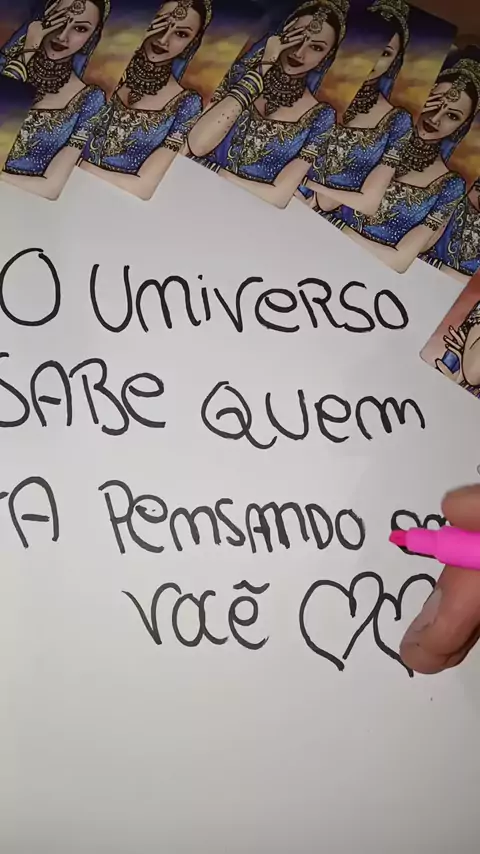 O UmiVeRSO
SABe Quem
TA PemSANDO
VOCẼ